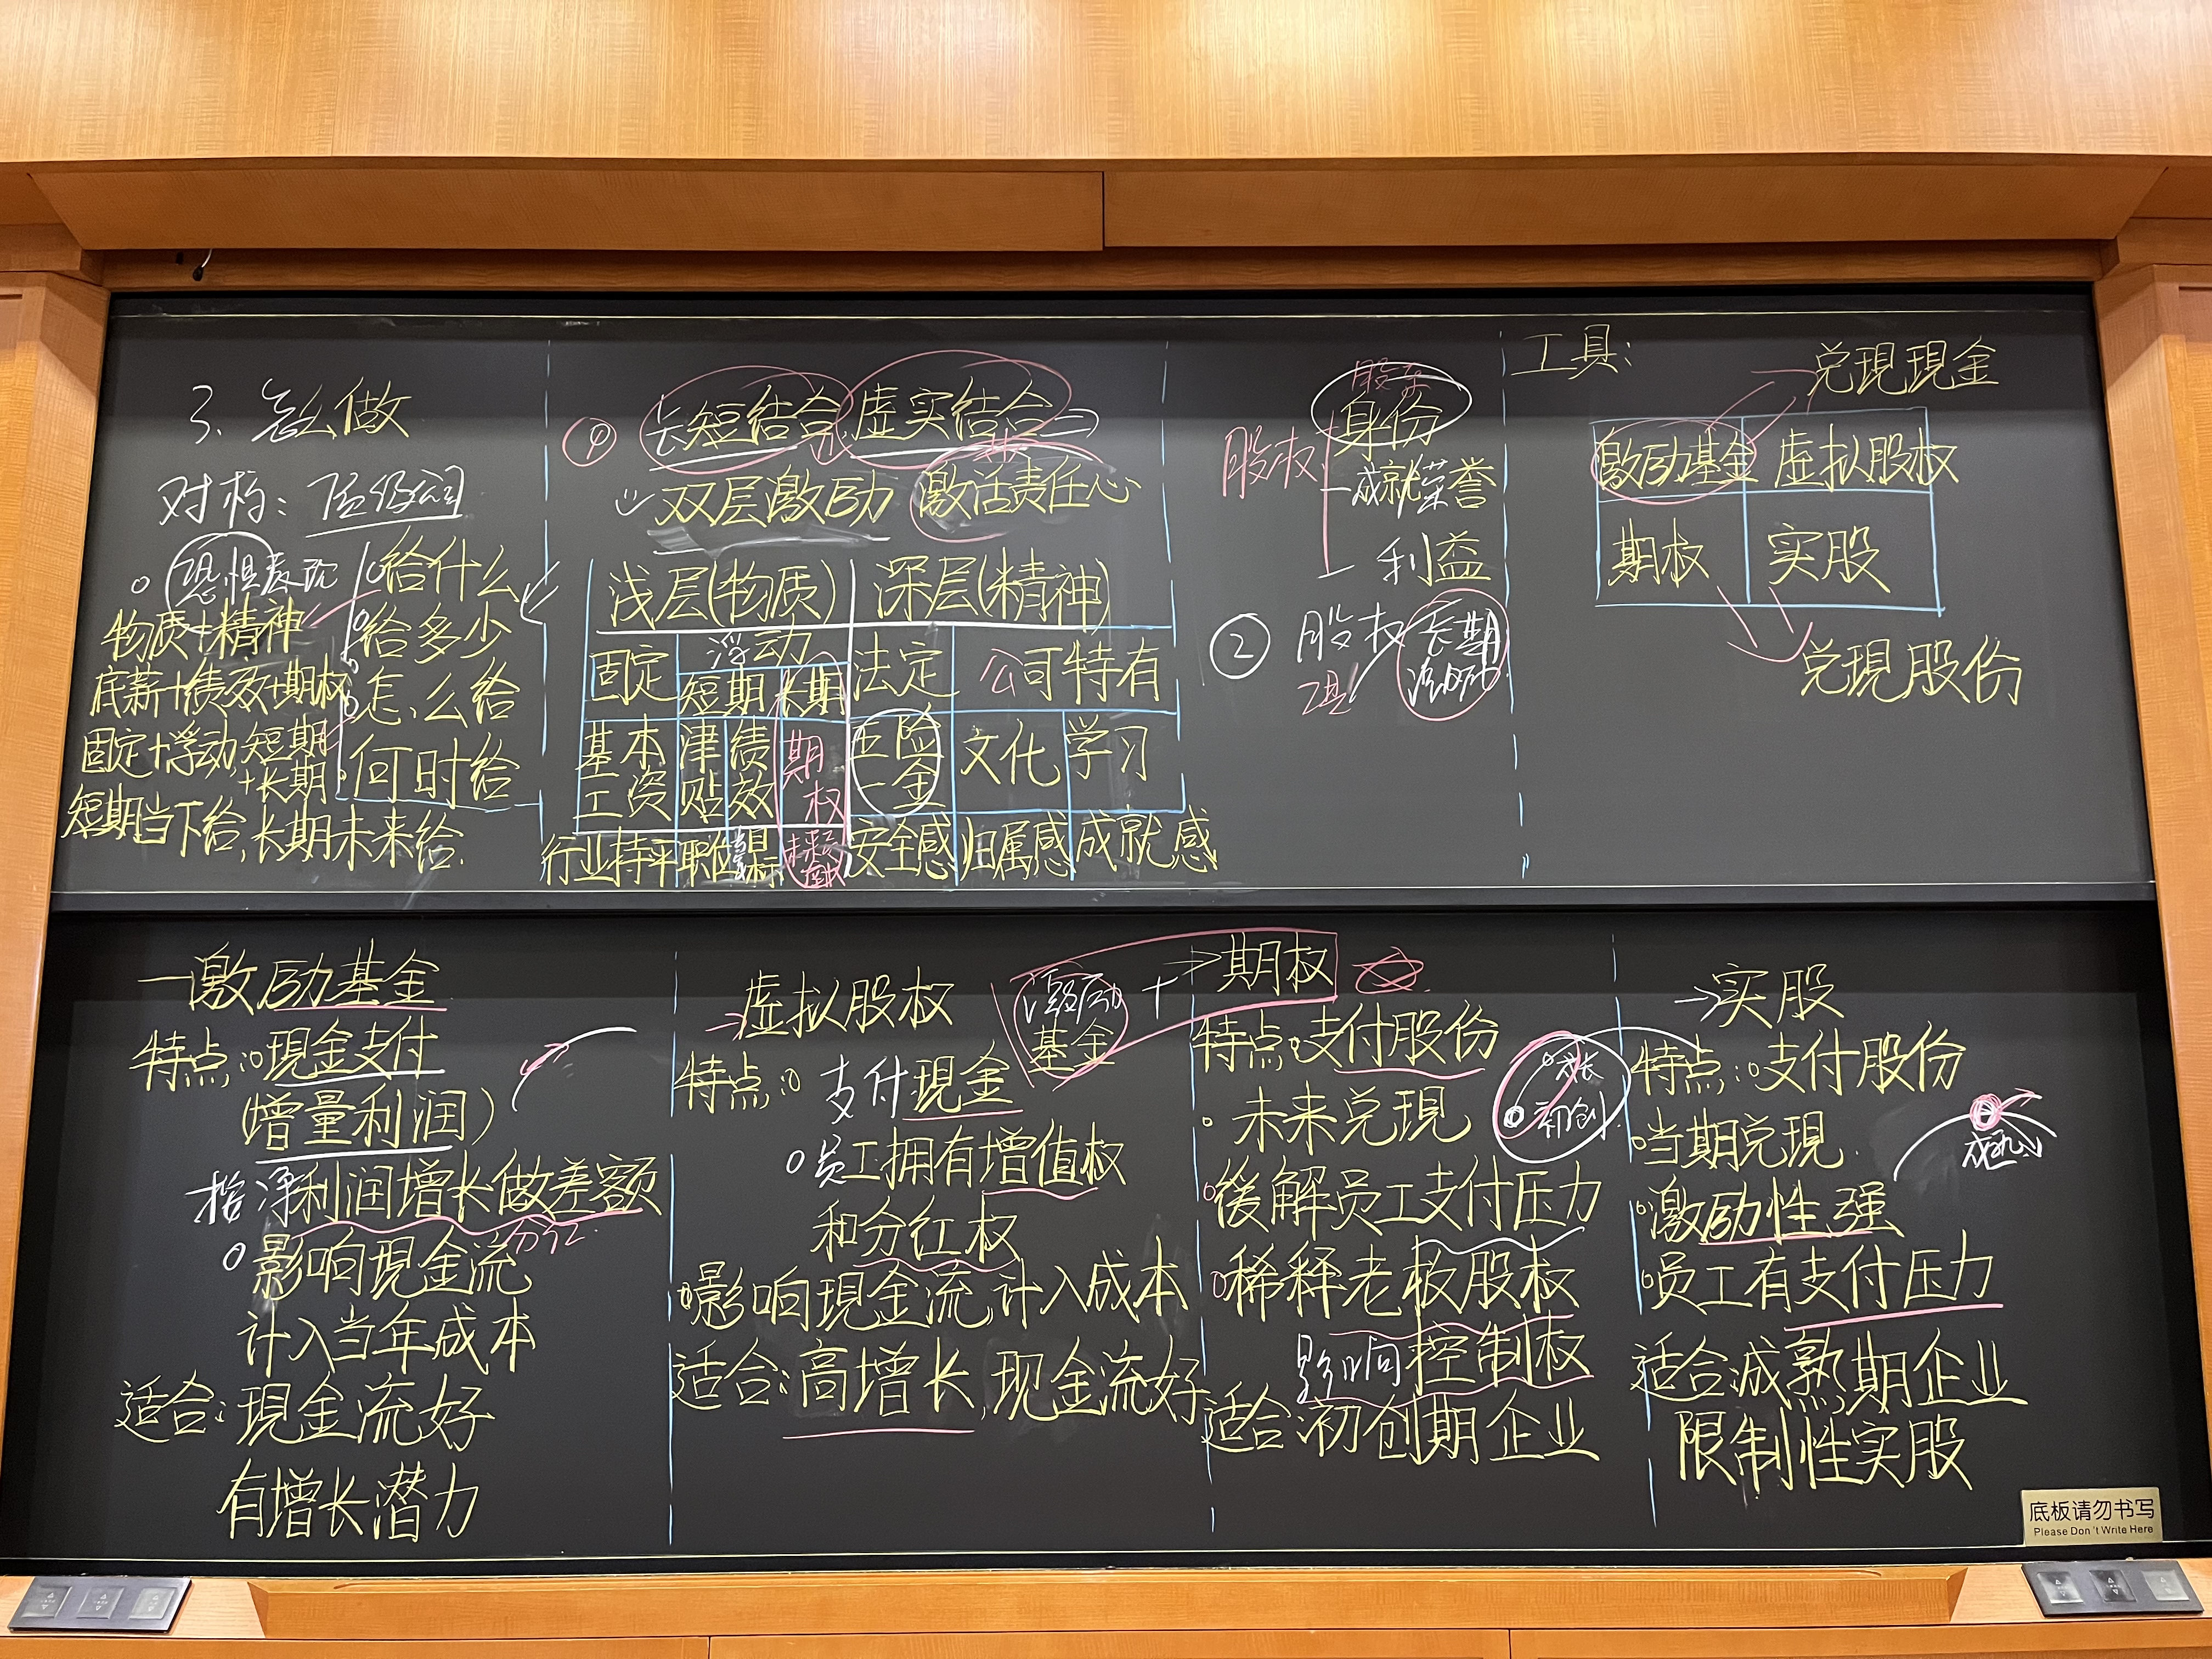 3、怎么做
对标:顶级公司
物质+精神
底薪+绩效+期权
固定+浮动,短期
+长期
短期当下给,长期未来给.
给什么
给多少
怎么给
何时给
长短结合,虚实结合
双层激励 激活责任心
浅层(物质) 深层(精神)
固定 浮动 法定 公司特有
短期 长期
基本工资 津贴 绩效 期权 五险一金 文化 学习
行业持平 职位 安全感 归属感 成就感
股东
身份
股权
成就荣誉
利益
② 股权 长期
激励
工具:
兑現現金
激励基金 虚拟股权
期权 实股
兑現股份
一激励基金
特点:現金支付
(增量利润)
指净利润增长做差额
分红
影响現金流
计入当年成本
适合:現金流好
有增长潜力
→虚拟股权
特点:支付現金
员工拥有增值权
和分红权
影响現金流,计入成本
适合:高增长,现金流好
激励
基金
+
→期权
特点:支付股份
未来兑現
缓解员工支付压力
稀释老板股权
影响控制权
适合:初创期企业
成长
初创
→实股
特点:支付股份
当期兑現
激励性强
员工有支付压力
适合:成熟期企业
限制性实股
成熟
底板请勿书写
Please Don't Write Here